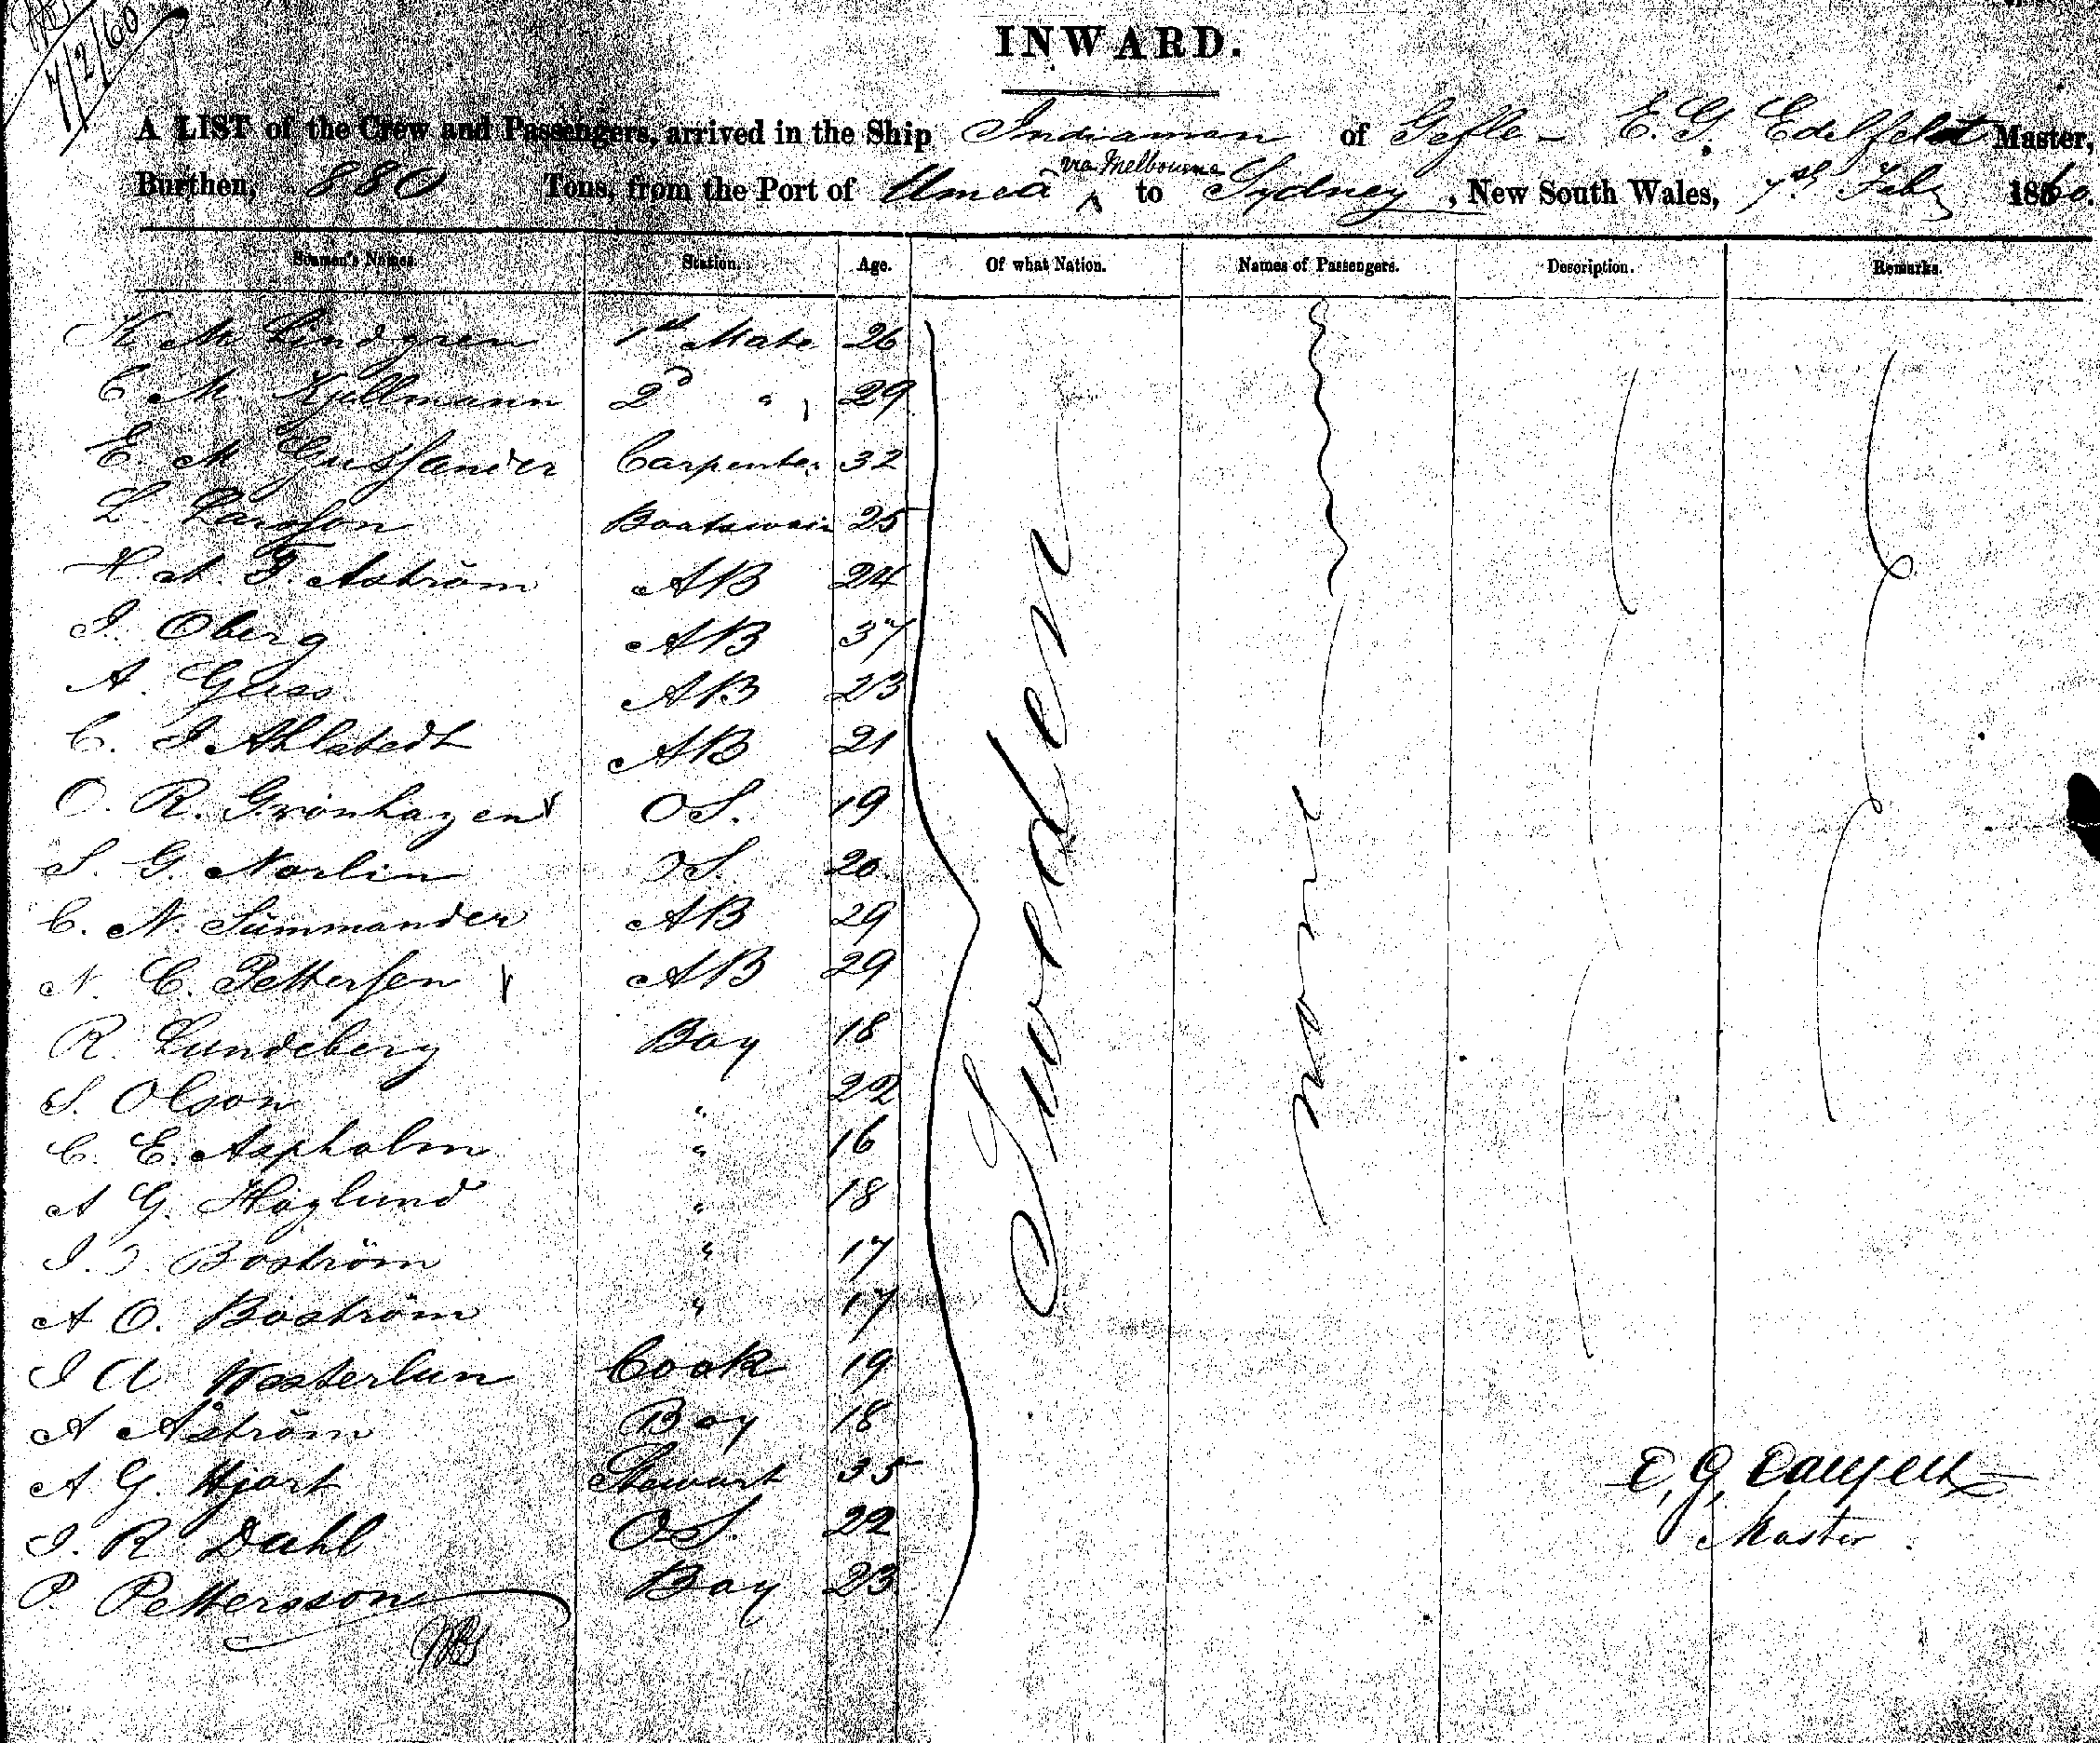 7/2/60
INWARD.
A LIST of the Crew and Passengers, arrived in the Ship Indiaman of Gefle - E. G. Edelfelt Master,
via Melbourne
Burthen, 880 Tons, from the Port of Umea to Sydney, New South Wales, 7th Feby 1860.
Seamen's Names. Station. Age. Of what Nation. Names of Passengers. Description. Remarks.
K M Lindgren 1st Mate 26
C M. Kjellmann 2d " 29
E. M. Gussander Carpenter 32
L. Larsson Boatswain 25
A. F. Aström AB 24
I. Oberg AB 37
A. AB 23
C. I Ahlstedt AB 21
O. R. Grönhagen OS. 19
S. G. Norlin OS. 20
C. N. Summander AB 29
N. C. Pettersen AB 29
R. Lundeberg Boy 18
S. Olson " 22
C. E. Aspholm " 16
A G. Höglund " 18
I. Boström " 17
A O. Boström " 17
I A Westerlun Cook 19
A Åström Boy 18
A G. Hjort Stewart 35
I. R Dahl OS. 22
P. Pettersson Boy 23
Sweden
none
E. G.
Master